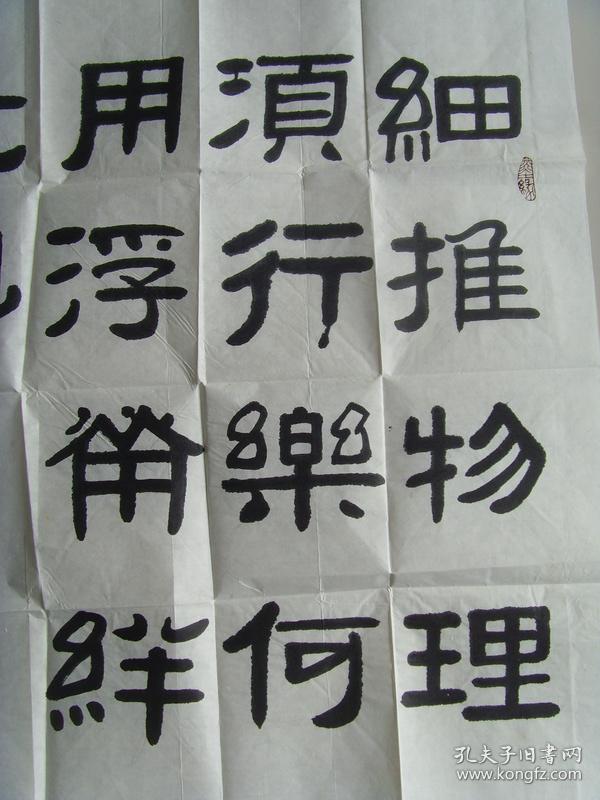 細推物理
湏行樂何
用浮榮絆
孔夫子旧書网
www.kongfz.com